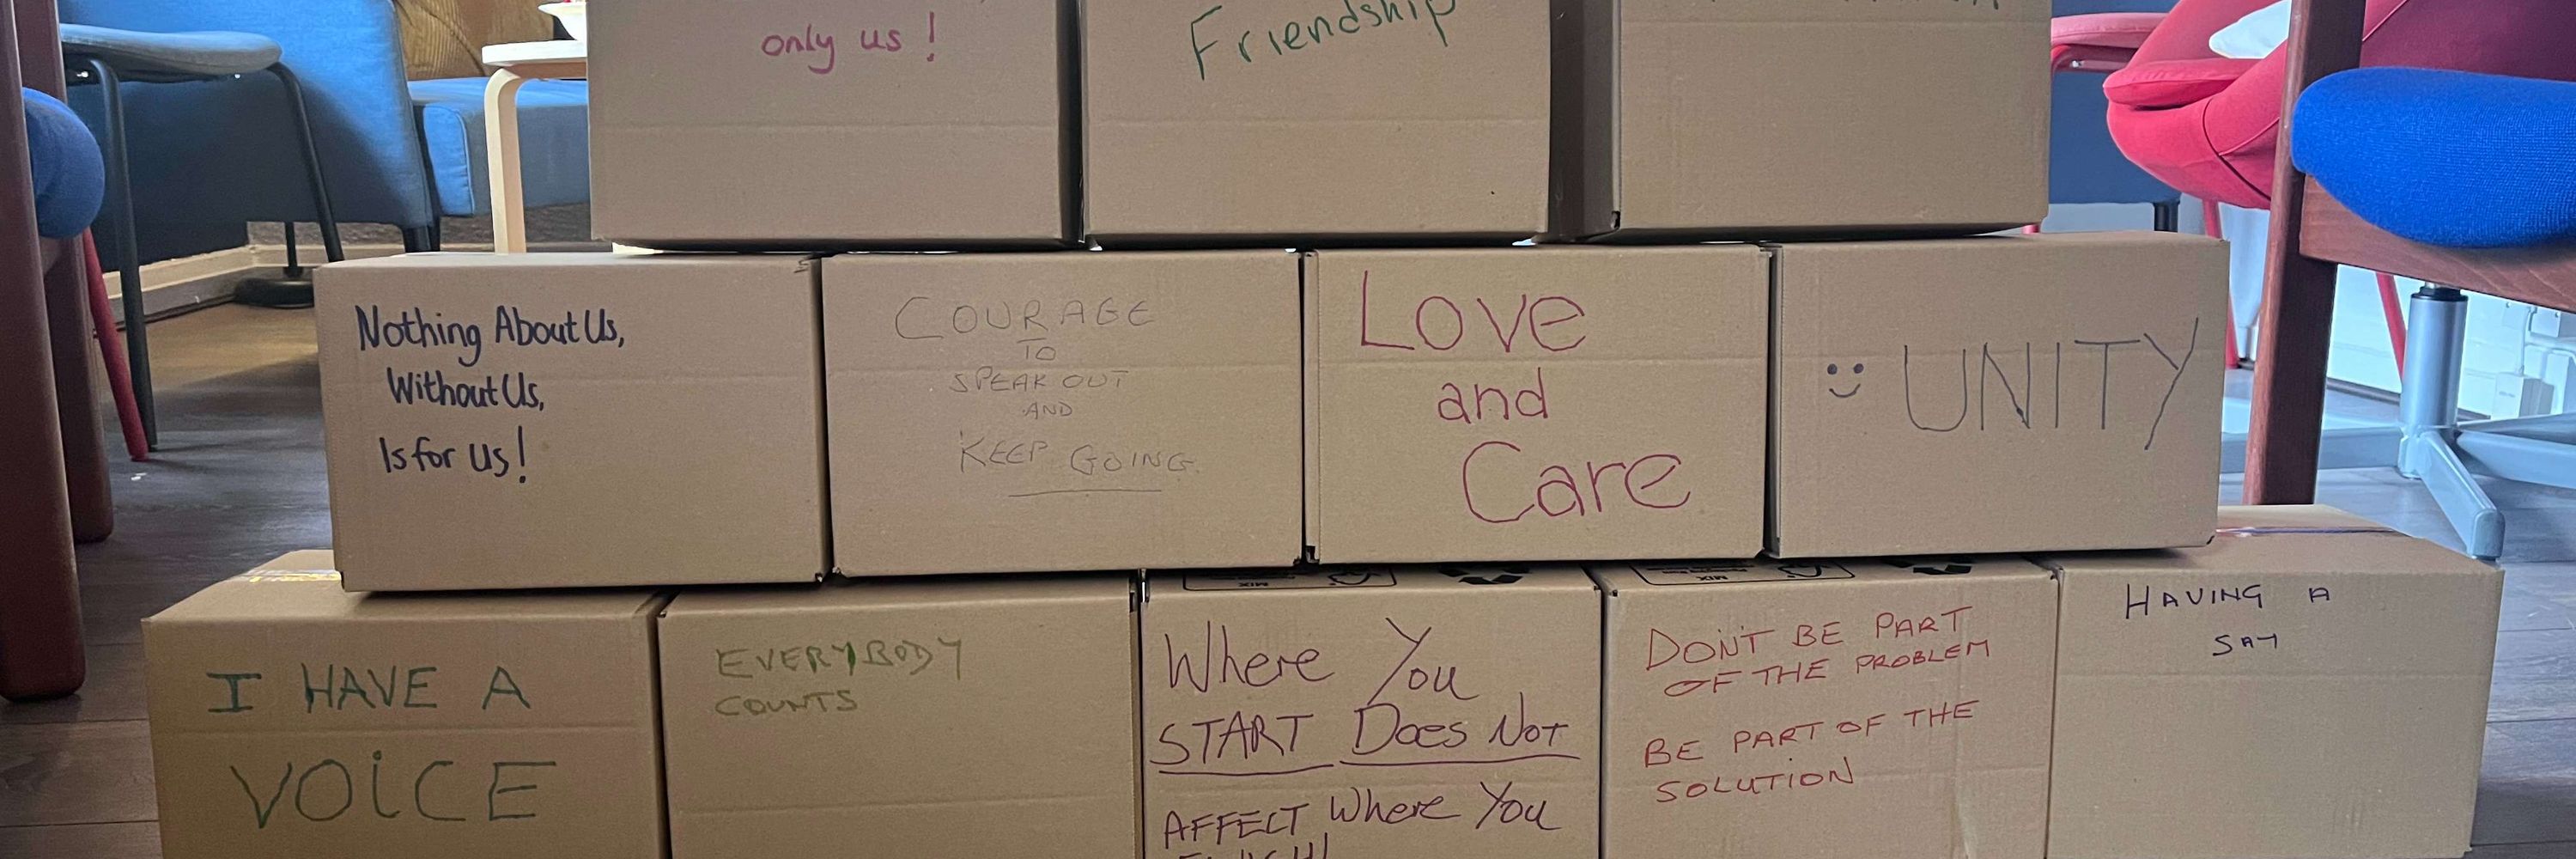 only us!
Friendship
Nothing About Us,
Without Us,
Is for us!
COURAGE
TO
SPEAK OUT
AND
KEEP GOING.
Love
and
Care
UNITY
I HAVE A
VOiCE
EVERYBODY
COUNTS
Where You
START Does Not
AFFECT Where You
DON'T BE PART
OF THE PROBLEM
BE PART OF THE
SOLUTION
HAVING A
SAY
MIX
MIX